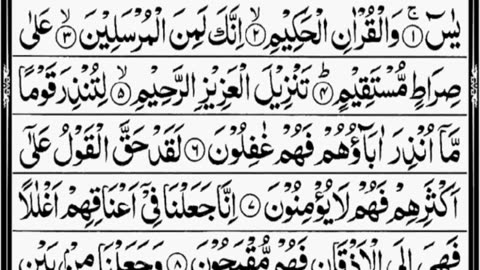 يٰسٓ ۚ ۝۱ وَالْقُرْاٰنِ الْحَكِيْمِ ۙ ۝۲ اِنَّكَ لَمِنَ الْمُرْسَلِيْنَ ۙ ۝۳ عَلٰى
صِرَاطٍ مُّسْتَقِيْمٍ ؕ ۝۴ تَنْزِيْلَ الْعَزِيْزِ الرَّحِيْمِ ۙ ۝۵ لِتُنْذِرَ قَوْمًا
مَّاۤ اُنْذِرَ اٰبَآؤُهُمْ فَهُمْ غٰفِلُوْنَ ۝۶ لَقَدْ حَقَّ الْقَوْلُ عَلٰۤى
اَكْثَرِهِمْ فَهُمْ لَا يُؤْمِنُوْنَ ۝۷ اِنَّا جَعَلْنَا فِيْۤ اَعْنَاقِهِمْ اَغْلٰلًا
فَهِيَ اِلَى الْاَذْقَانِ فَهُمْ مُّقْمَحُوْنَ ۝۸ وَجَعَلْنَا مِنْۢ بَيْنِ